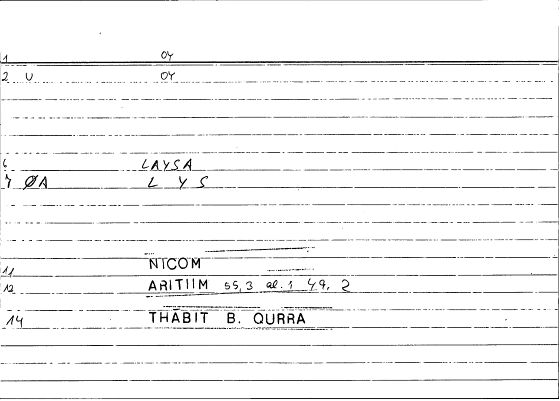 1 OY
2 U OY
6 LAYSA
7 ØA L Y S
11 NICOM
12 ARITIIM 55,3 al. 1 49, 2
14 THABIT B. QURRA